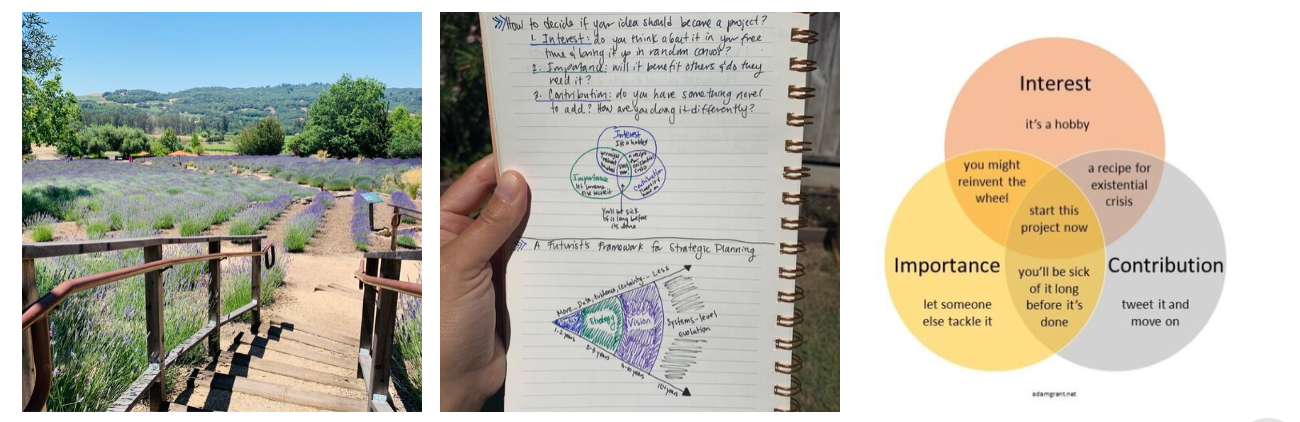 How to decide if your idea should become a project?
1. Interest: do you think about it in your free
time & bring it up in random convos?
2. Importance: will it benefit others & do they
need it?
3. Contribution: do you have something novel
to add? How are you doing it differently?
Interest
It's a hobby
you might
reinvent
wheel
start
now
a recipe
for
existential
crisis
Importance
let someone
else tackle it
Contribution
tweet it &
move on
You'll be sick
of it long before
its done
A Futurist's Framework for Strategic Planning
More... Data, evidence, certainty... Less
Strategy
Vision
Systems-level
evolution
1-2 years
10+ years
Interest
it's a hobby
you might
reinvent the
wheel
a recipe for
existential
crisis
start this
project now
Importance
let someone
else tackle it
you'll be sick
of it long
before it's
done
Contribution
tweet it and
move on
adamgrant.net